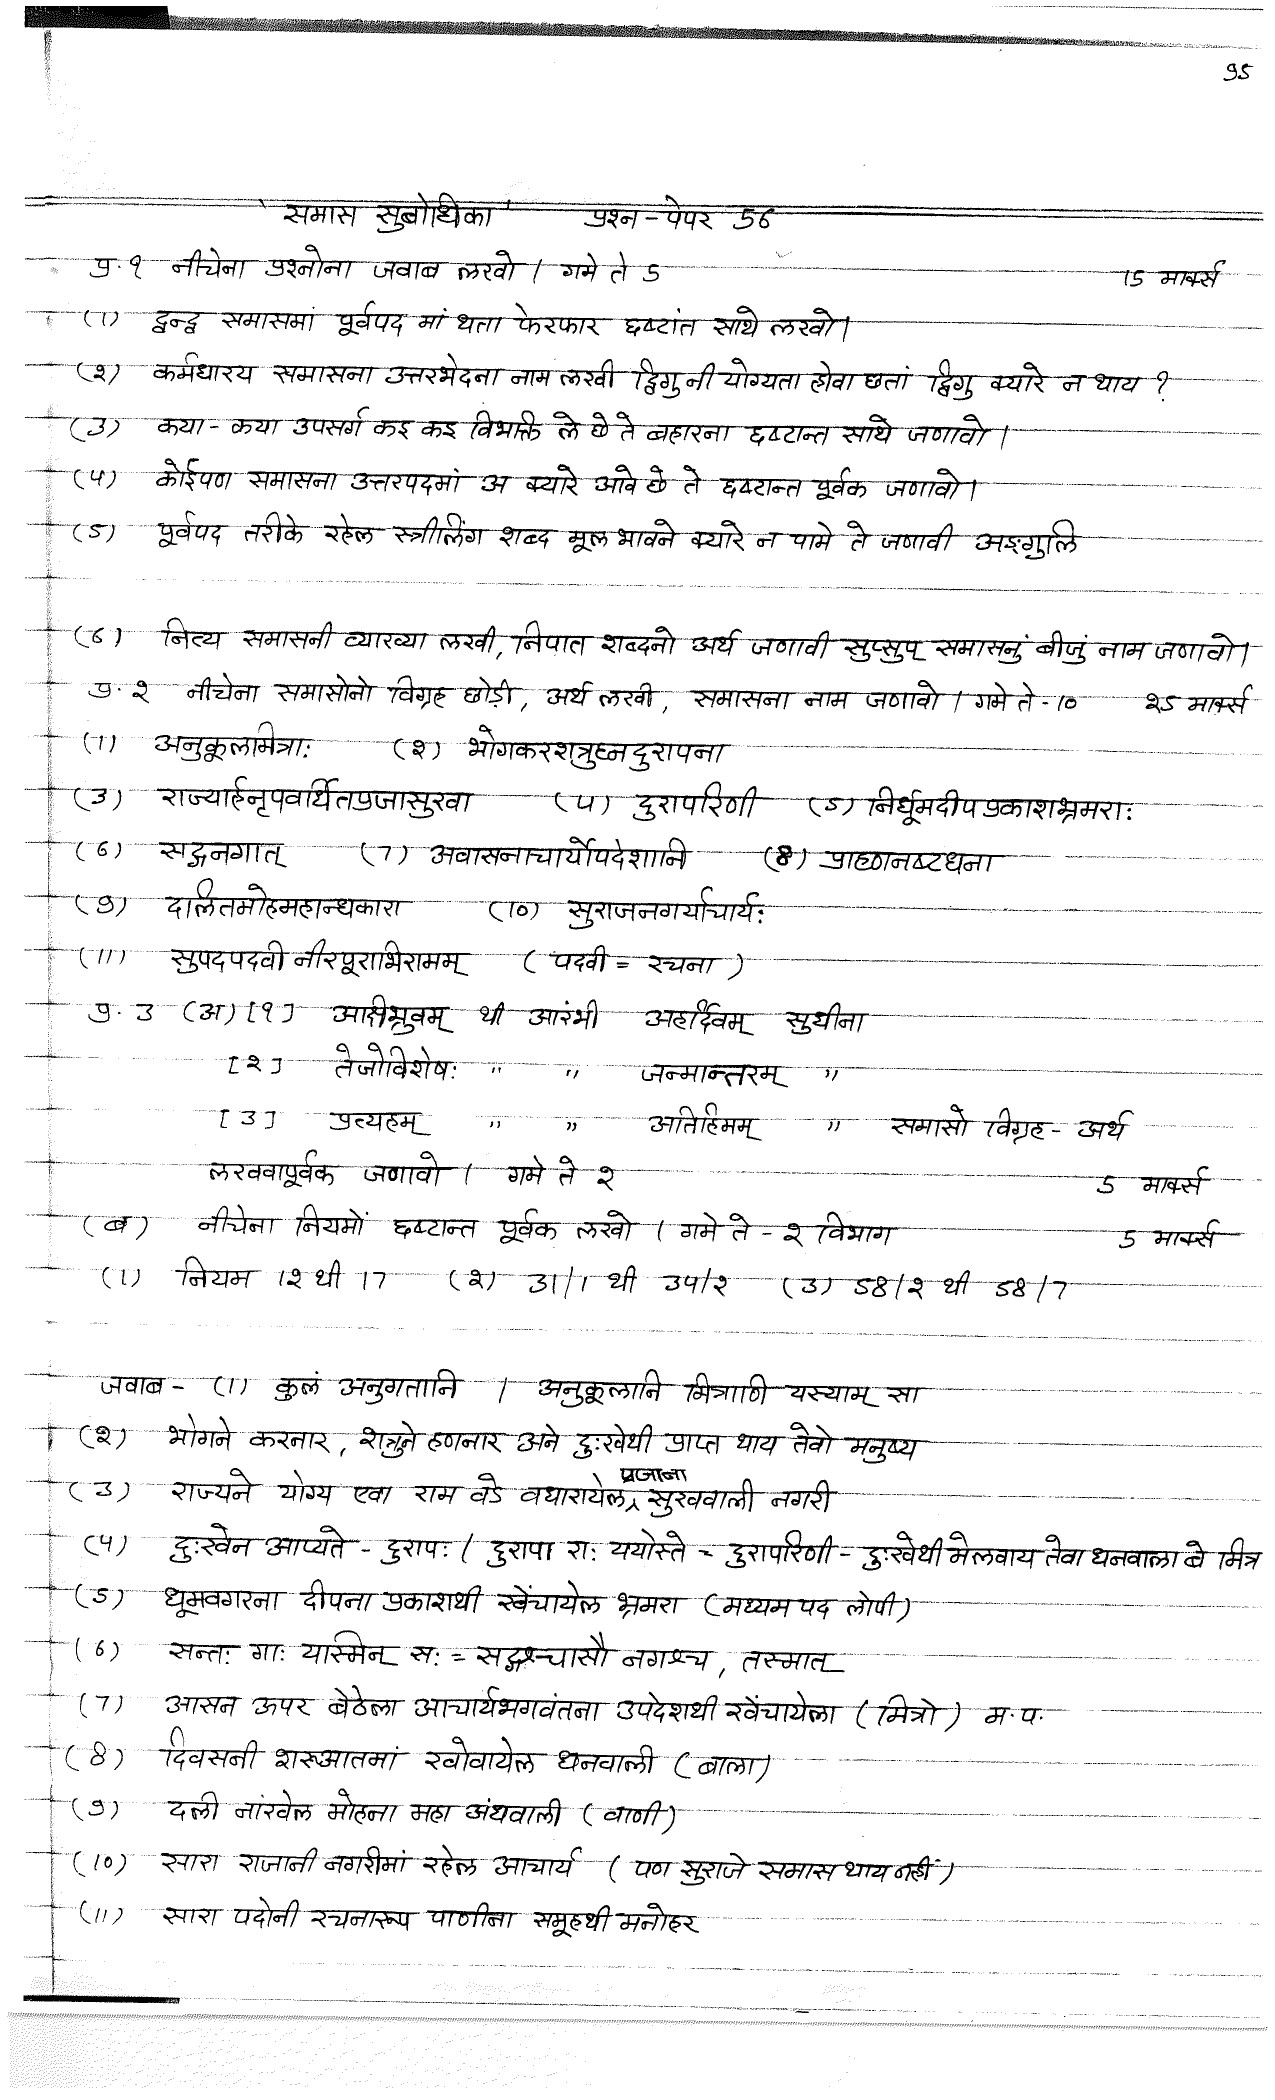 95
'समास सुबोधिका' प्रश्न-पेपर 56
प्र.१ नीचेना प्रश्नोना जवाब लखो। गमे ते 5 15 मार्क्स
(1) द्वन्द्व समासमां पूर्वपद मां थता फेरफार दृष्टांत साथे लखो।
(२) कर्मधारय समासना उत्तरभेदना नाम लखी द्विगु नी योग्यता होवा छतां द्विगु क्यारे न थाय?
(3) कया-कया उपसर्ग कइ कइ विभक्ति ले छे ते बहारना दृष्टान्त साथे जणावो।
(५) कोईपण समासना उत्तरपदमां अ क्यारे आवे छे ते दृष्टान्त पूर्वक जणावो।
(5) पूर्वपद तरीके रहेल स्त्रीलिंग शब्द मूल भावने क्यारे न पामे ते जणावी अङ्गुलि
(6) नित्य समासनी व्याख्या लखी, निपात शब्दनो अर्थ जणावी सुप्सुप् समासनुं बीजुं नाम जणावो।
प्र.२ नीचेना समासोनो विग्रह छोड़ी, अर्थ लखी, समासना नाम जणावो। गमे ते-10 २5 मार्क्स
(1) अनुकूलमित्राः (२) भोगकरशत्रुघ्नदुरापना
(3) राज्यार्हनृपवर्धितप्रजासुखा (५) दुरापरिणी (5) निर्धूमदीपप्रकाशभ्रमराः
(6) सद्गनगात् (7) अवासनाचार्योपदेशानि (8) प्राह्णनष्टधना
(9) दलितमोहमहान्धकारा (10) सुराजनगर्याचार्यः
(11) सुपदपदवीनीरपूराभिरामम् (पदवी = रचना)
प्र.3 (अ) [१] अक्षिभ्रुवम् थी आरंभी अहर्दिवम् सुधीना
[२] तेजोविशेषः " " जन्मान्तरम् "
[3] प्रत्यहम् " " अतिहिमम् " समासो विग्रह-अर्थ
लखवापूर्वक जणावो। गमे ते २ 5 मार्क्स
(ब) नीचेना नियमों दृष्टान्त पूर्वक लखो। गमे ते-२ विभाग 5 मार्क्स
(1) नियम 1२ थी 17 (२) 31/1 थी 3५/२ (3) 58/२ थी 58/7
जवाब- (1) कुलं अनुगतानि। अनुकूलानि मित्राणि यस्याम् सा
(२) भोगने करनार, शत्रुने हणनार अने दुःखेथी प्राप्त थाय तेवो मनुष्य
(3) राज्यने योग्य एवा राम वडे वधारायेल प्रजाना सुखवाली नगरी
(५) दुःखेन आप्यते-दुरापः। दुरापा राः ययोस्ते = दुरापरिणी-दुःखेथी मेलवाय तेवा धनवाला बे मित्र
(5) धूमवगरना दीपना प्रकाशथी खेंचायेल भ्रमरा (मध्यम पद लोपी)
(6) सन्तः गाः यस्मिन् सः = सद्गश्चासौ नगश्च, तस्मात्
(7) आसन ऊपर बेठेला आचार्यभगवंतना उपदेशथी खेंचायेला (मित्रो) म.प.
(8) दिवसनी शरूआतमां खोवायेल धनवाली (बाला)
(9) दली नांखेल मोहना महा अंधवाली (वाणी)
(10) सारा राजानी नगरीमां रहेल आचार्य (पण सुराजे समास थाय नहीं)
(11) सारा पदोनी रचनारूप पाणीना समूहथी मनोहर